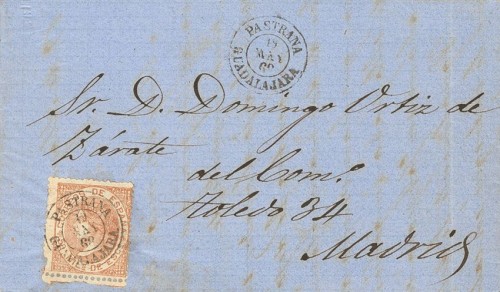 PASTRANA
MAY
69
GUADALAJARA
Sr. D. Domingo Ortiz de
Zárate
del Com.º
Toledo 34
Madrid
DE ESPAÑ
PASTRANA
69
GUADALAJARA